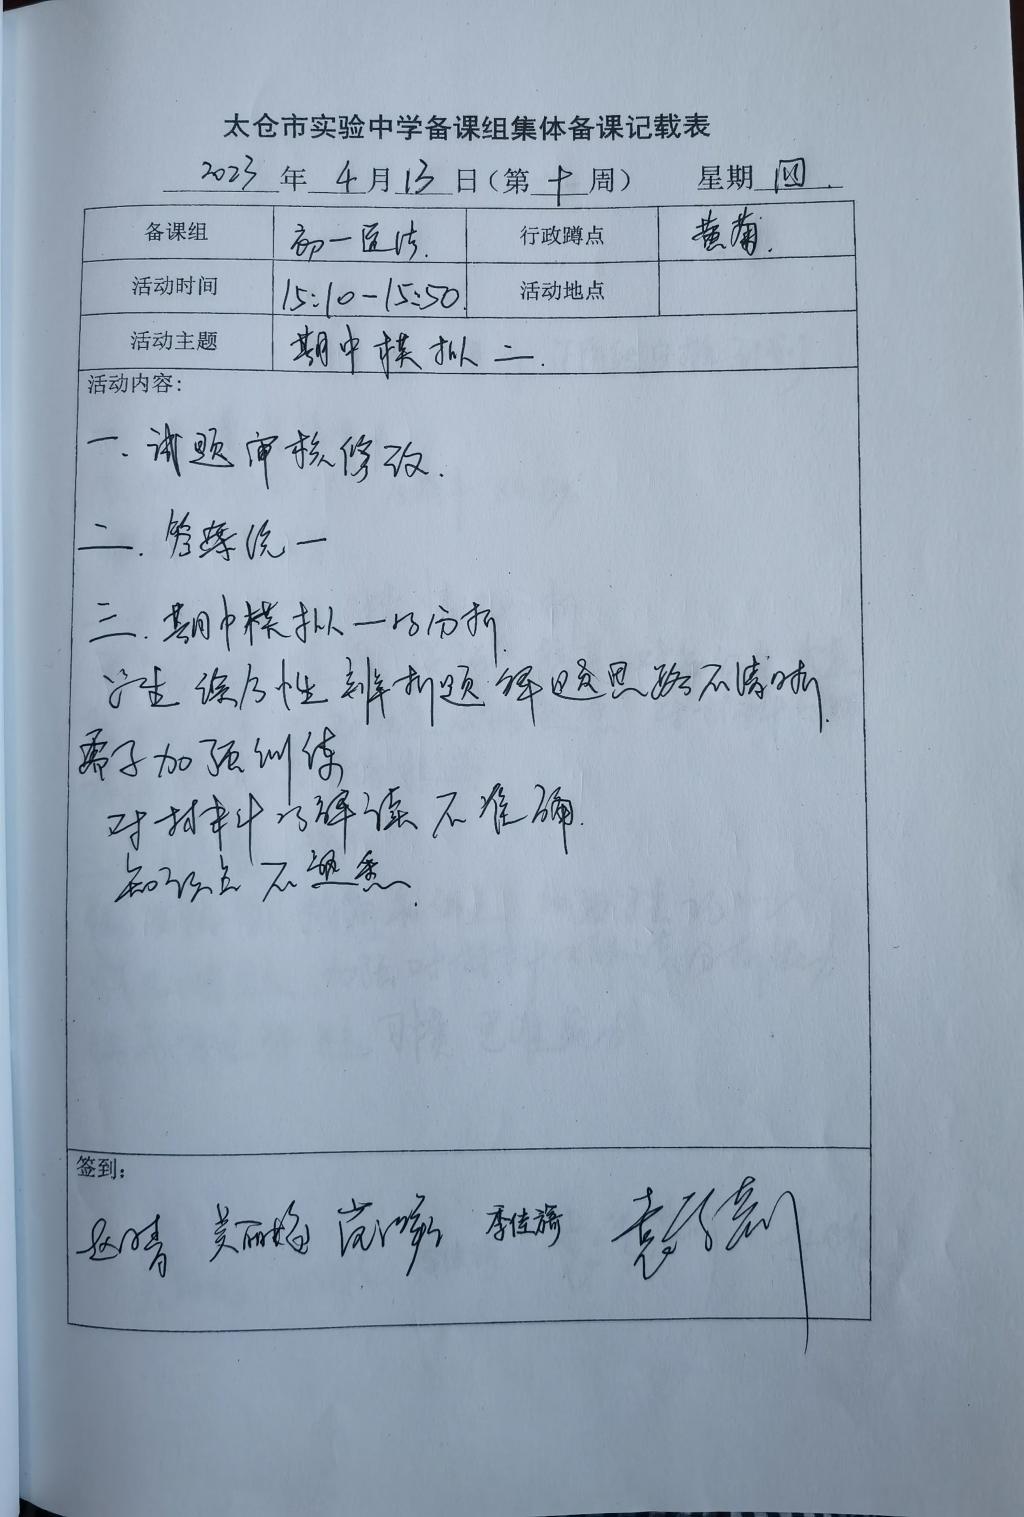 太仓市实验中学备课组集体备课记载表
2023年4月13日（第十周） 星期四.
备课组 初一道法. 行政蹲点 黄菊.
活动时间 15:10-15:50. 活动地点
活动主题 期中模拟二.
活动内容:
一. 试题审核修改.
二. 答案统一
三. 期中模拟一的分析
学生综合性辨析题解题思路不清晰.
需予加强训练
对材料的解读不准确.
知识点不熟悉.
签到:
赵晴 吴丽梅 季佳旖